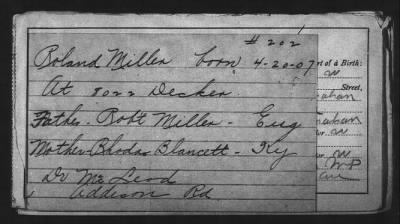 # 202
Roland Miller born 4-20-07
At 8022 Decker
Father - Robt Miller - Eng
Mother - Rhoda Blancett - Ky
Dr Mc Leod
Addison Rd
rt of a Birth:
Street,